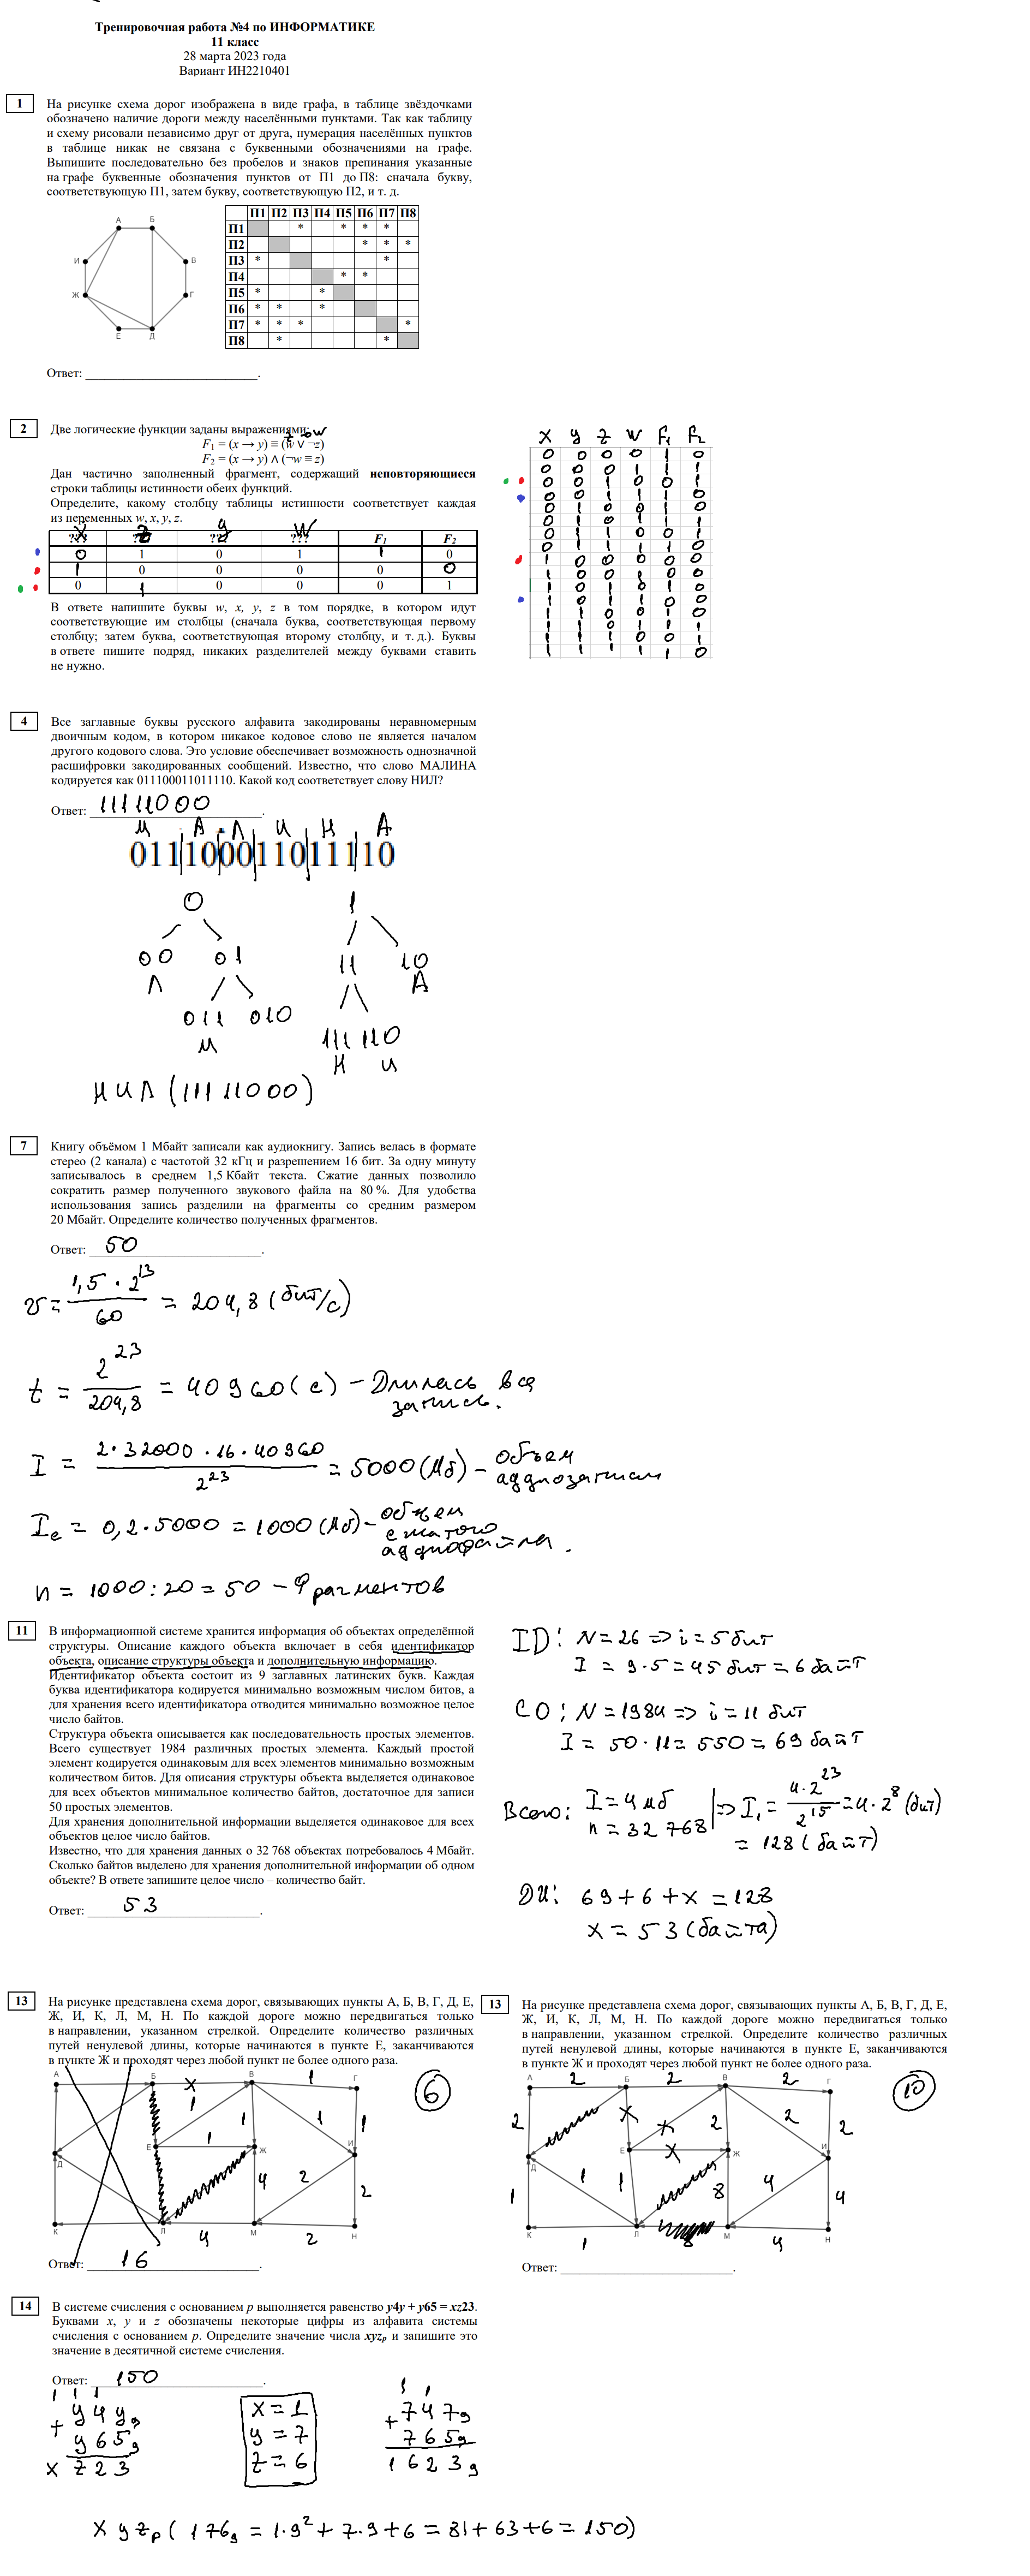 Тренировочная работа №4 по ИНФОРМАТИКЕ
11 класс
28 марта 2023 года
Вариант ИН2210401
1
На рисунке схема дорог изображена в виде графа, в таблице звёздочками
обозначено наличие дороги между населёнными пунктами. Так как таблицу
и схему рисовали независимо друг от друга, нумерация населённых пунктов
в таблице никак не связана с буквенными обозначениями на графе.
Выпишите последовательно без пробелов и знаков препинания указанные
на графе буквенные обозначения пунктов от П1 до П8: сначала букву,
соответствующую П1, затем букву, соответствующую П2, и т. д.
А Б
И В
Ж Г
Е Д
П1 П2 П3 П4 П5 П6 П7 П8
П1 * * * *
П2 * * *
П3 * *
П4 * *
П5 * *
П6 * * *
П7 * * * *
П8 * *
Ответ: ____________________________.
2
Две логические функции заданы выражениями:
z→w
F1 = (x → y) ≡ (w ∨ ¬z)
F2 = (x → y) ∧ (¬w ≡ z)
Дан частично заполненный фрагмент, содержащий неповторяющиеся
строки таблицы истинности обеих функций.
Определите, какому столбцу таблицы истинности соответствует каждая
из переменных w, x, y, z.
x z y w
??? ??? ??? ??? F1 F2
0 1 0 1 1 0
1 0 0 0 0 0
0 1 0 0 0 1
В ответе напишите буквы w, x, y, z в том порядке, в котором идут
соответствующие им столбцы (сначала буква, соответствующая первому
столбцу; затем буква, соответствующая второму столбцу, и т. д.). Буквы
в ответе пишите подряд, никаких разделителей между буквами ставить
не нужно.
x y z w F1 F2
0 0 0 0 1 0
0 0 0 1 1 1
0 0 1 0 0 1
0 0 1 1 1 0
0 1 0 0 1 0
0 1 0 1 1 1
0 1 1 0 0 1
0 1 1 1 1 0
1 0 0 0 0 0
1 0 0 1 0 0
1 0 1 0 1 0
1 0 1 1 0 0
1 1 0 0 1 0
1 1 0 1 1 1
1 1 1 0 0 1
1 1 1 1 1 0
4
Все заглавные буквы русского алфавита закодированы неравномерным
двоичным кодом, в котором никакое кодовое слово не является началом
другого кодового слова. Это условие обеспечивает возможность однозначной
расшифровки закодированных сообщений. Известно, что слово МАЛИНА
кодируется как 011100011011110. Какой код соответствует слову НИЛ?
Ответ: 11111000.
М А Л И Н А
011|10|00|110|111|10
0 1
00 01 11 10
Л А
011 010 111 110
М Н И
НИЛ (11111000)
7
Книгу объёмом 1 Мбайт записали как аудиокнигу. Запись велась в формате
стерео (2 канала) с частотой 32 кГц и разрешением 16 бит. За одну минуту
записывалось в среднем 1,5 Кбайт текста. Сжатие данных позволило
сократить размер полученного звукового файла на 80 %. Для удобства
использования запись разделили на фрагменты со средним размером
20 Мбайт. Определите количество полученных фрагментов.
Ответ: 50.
v = 1,5 · 2^13 / 60 = 204,8 (бит/с)
t = 2^23 / 204,8 = 40960 (с) – Длилась вся
запись.
I = 2·32000·16·40960 / 2^23 = 5000 (Мб) – объем
аудиозаписи
Iс = 0,2·5000 = 1000 (Мб) – объем
сжатого
аудиофайла.
n = 1000:20 = 50 – Фрагментов
11
В информационной системе хранится информация об объектах определённой
структуры. Описание каждого объекта включает в себя идентификатор
объекта, описание структуры объекта и дополнительную информацию.
Идентификатор объекта состоит из 9 заглавных латинских букв. Каждая
буква идентификатора кодируется минимально возможным числом битов, а
для хранения всего идентификатора отводится минимально возможное целое
число байтов.
Структура объекта описывается как последовательность простых элементов.
Всего существует 1984 различных простых элемента. Каждый простой
элемент кодируется одинаковым для всех элементов минимально возможным
количеством битов. Для описания структуры объекта выделяется одинаковое
для всех объектов минимальное количество байтов, достаточное для записи
50 простых элементов.
Для хранения дополнительной информации выделяется одинаковое для всех
объектов целое число байтов.
Известно, что для хранения данных о 32 768 объектах потребовалось 4 Мбайт.
Сколько байтов выделено для хранения дополнительной информации об одном
объекте? В ответе запишите целое число – количество байт.
Ответ: 53.
ID: N=26 => i=5 бит
I = 9·5=45 бит = 6 байт
СО: N=1984 => i=11 бит
I = 50·11= 550 = 69 байт
Всего: I=4 мб
n = 32 768 | => I1 = 4·2^23 / 2^15 = 4·2^8 (бит)
= 128 (байт)
ДИ: 69+6+x=128
x = 53 (байта)
13
На рисунке представлена схема дорог, связывающих пункты А, Б, В, Г, Д, Е,
Ж, И, К, Л, М, Н. По каждой дороге можно передвигаться только
в направлении, указанном стрелкой. Определите количество различных
путей ненулевой длины, которые начинаются в пункте Е, заканчиваются
в пункте Ж и проходят через любой пункт не более одного раза.
А Б x В 1 Г
6
1 1 1 1
Е 1 Ж И
Д 4 2 2
К Л 4 М 2 Н
Ответ: 16.
13
На рисунке представлена схема дорог, связывающих пункты А, Б, В, Г, Д, Е,
Ж, И, К, Л, М, Н. По каждой дороге можно передвигаться только
в направлении, указанном стрелкой. Определите количество различных
путей ненулевой длины, которые начинаются в пункте Е, заканчиваются
в пункте Ж и проходят через любой пункт не более одного раза.
А 2 Б 2 В 2 Г
10
2 x x 2 2 2
Е x Ж И
Д 1 1 8 4 4
1
К 1 Л 8 М 4 Н
Ответ: ____________________________.
14
В системе счисления с основанием p выполняется равенство y4y + y65 = xz23.
Буквами x, y и z обозначены некоторые цифры из алфавита системы
счисления с основанием p. Определите значение числа xyzp и запишите это
значение в десятичной системе счисления.
Ответ: 150.
1 1 1
+ y4y9
y659
xz23
x = 1
y = 7
z = 6
1 1
+ 7479
7659
16239
xyzp (1769 = 1·9^2 + 7·9 + 6 = 81+63+6 = 150)